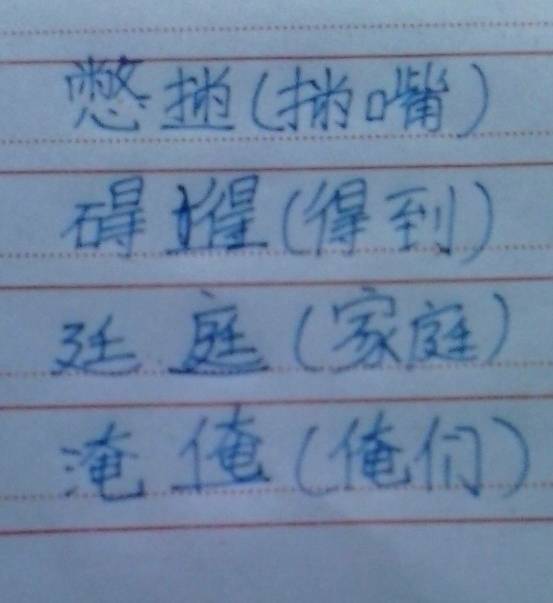 憋 撇(撇嘴)
碍 得(得到)
廷 庭(家庭)
淹 俺(俺们)